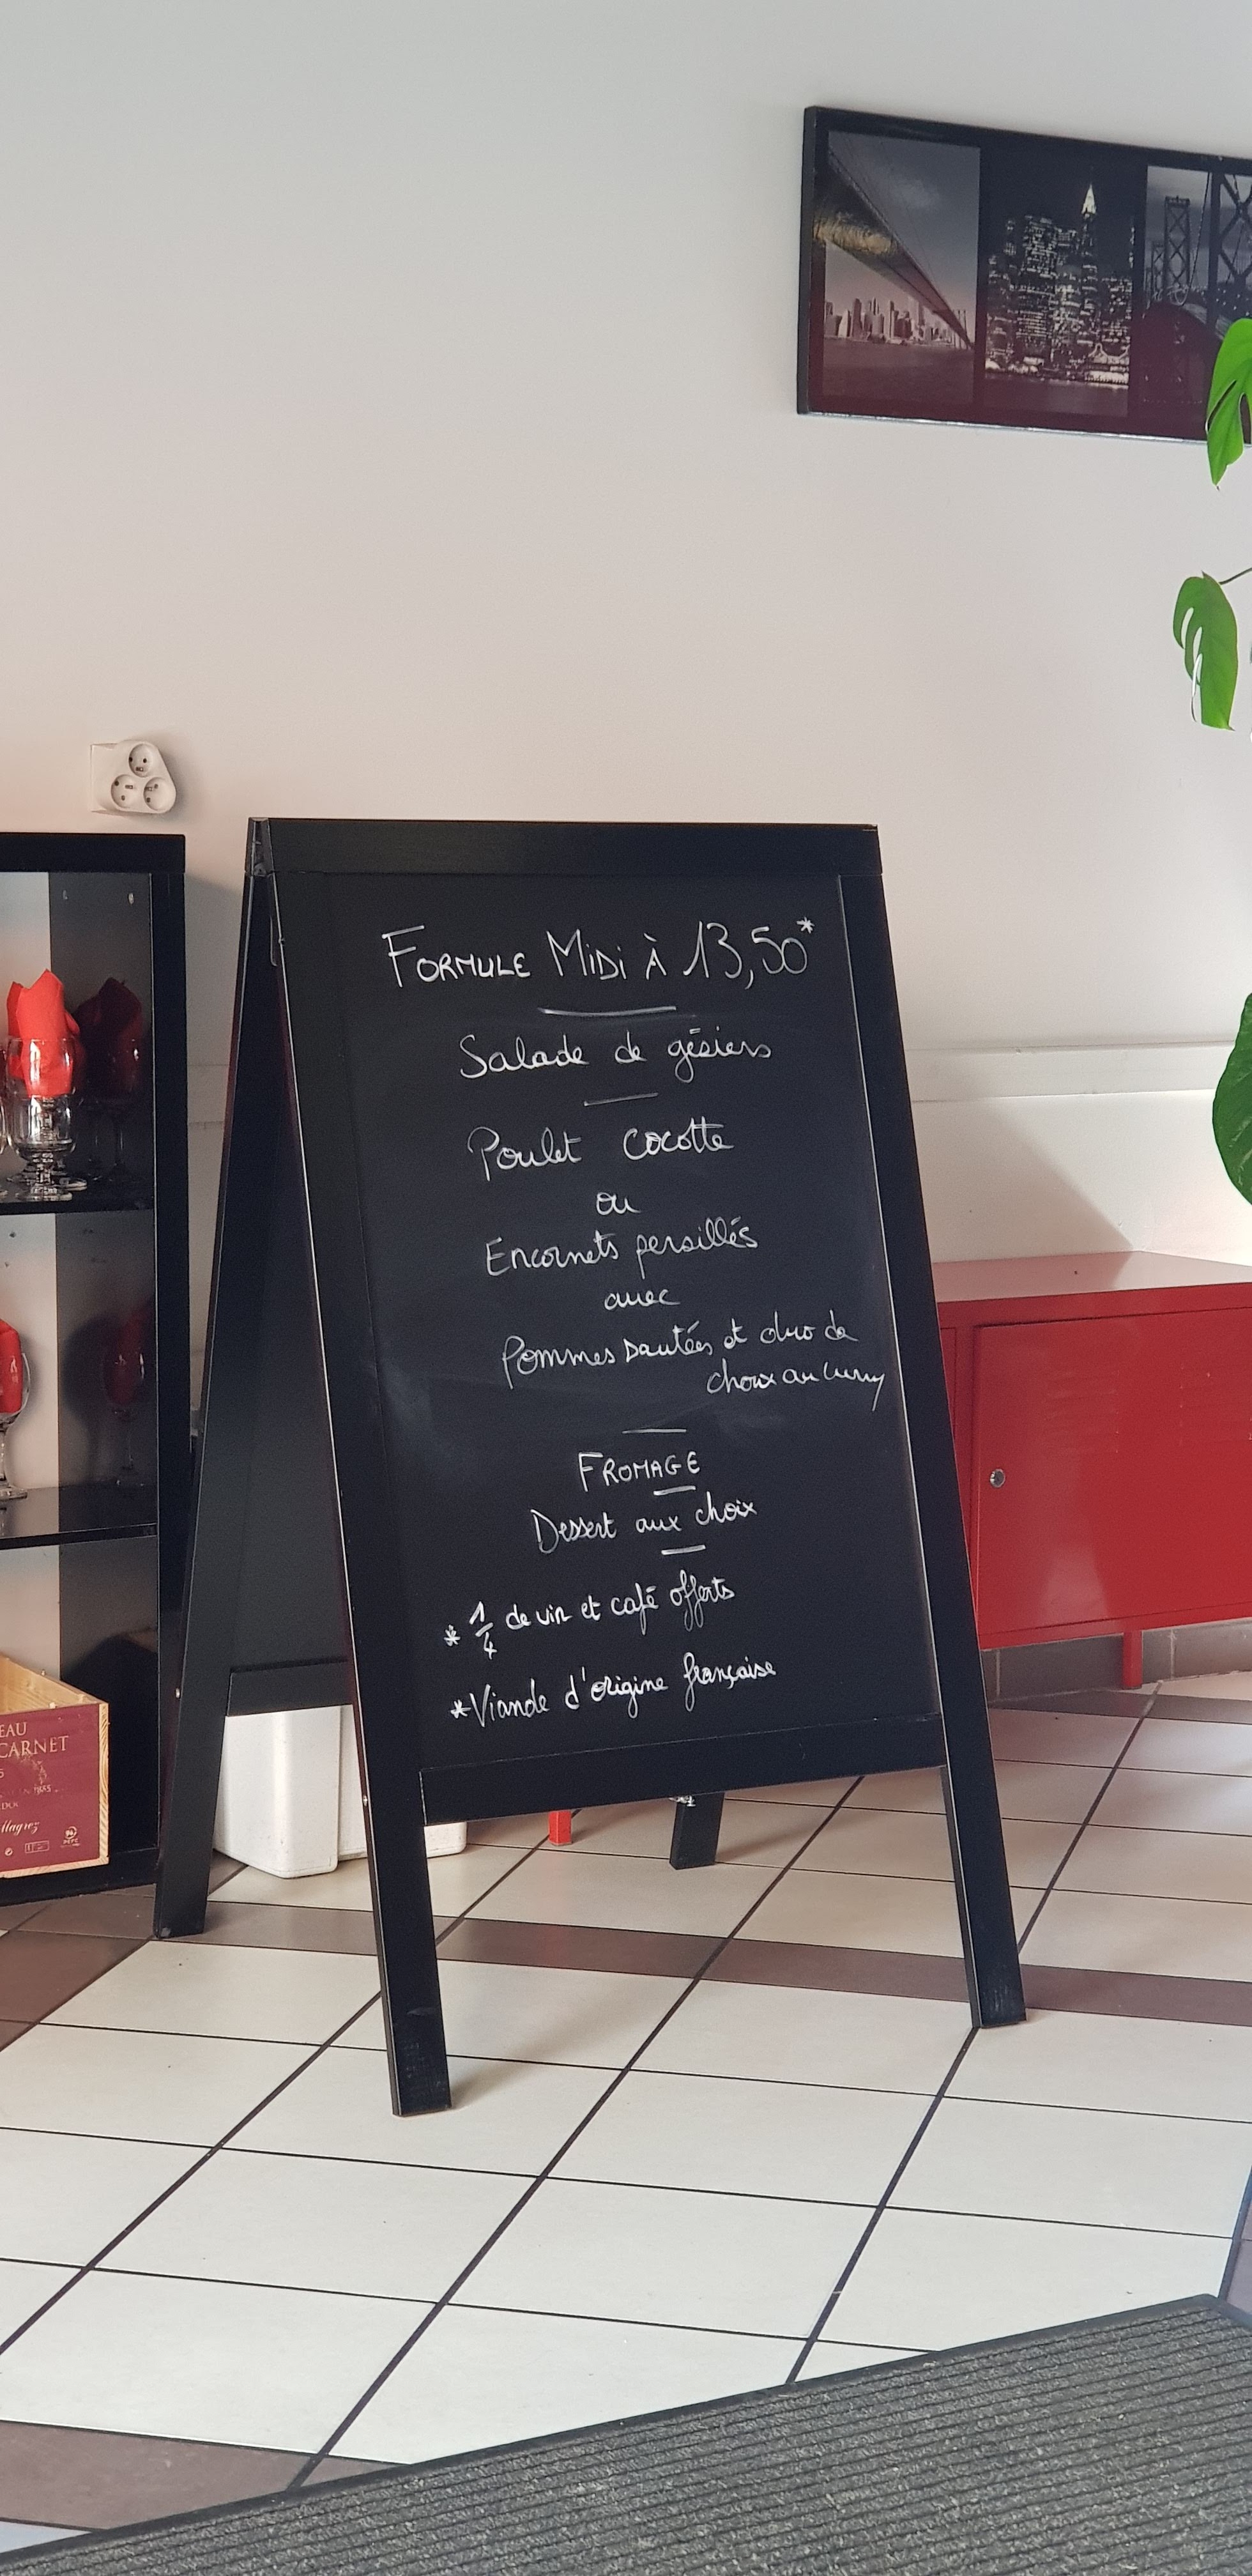 FORMULE MIDI À 13,50*
Salade de gésiers
Poulet cocotte
ou
Encornets persillés
avec
Pommes sautées et duo de
choux au curry
FROMAGE
Dessert aux choix
* 1/4 de vin et café offerts
*Viande d'origine française
EAU
CARNET
Magrez